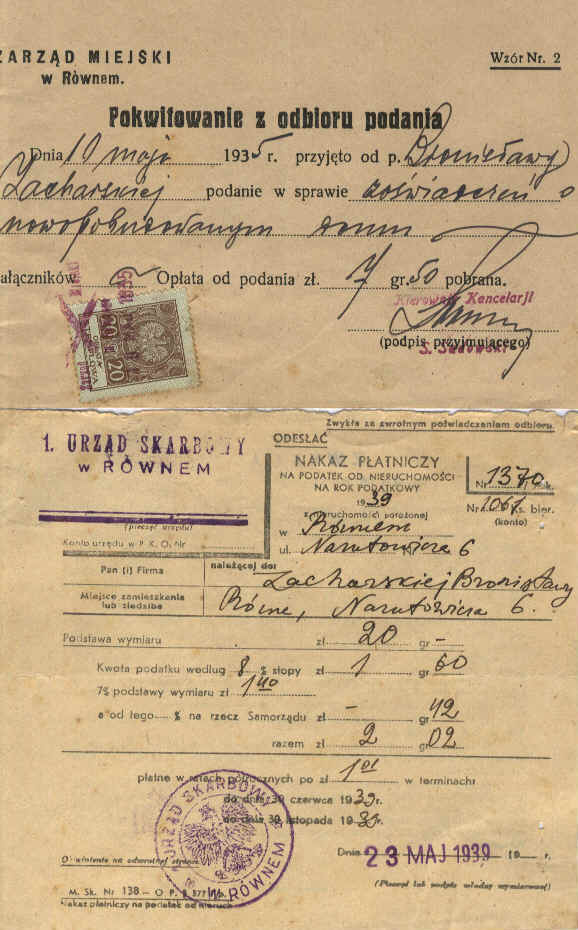 ZARZĄD MIEJSKI
w Równem.
Wzór Nr. 2
Pokwitowanie z odbioru podania
Dnia 10 maja 1935 r. przyjęto od p. Bronisławy
Zacharskiej podanie w sprawie o
nowopobudowanym domu
ałączników Opłata od podania zł. 7 gr. 50 pobrana.
Kierownik Kancelarji
(podpis przyjmującego)
S. Sadowski
20 20
Zwykłe za zwrotnym poświadczeniem odbioru.
ODESŁAĆ
1. URZĄD SKARBOWY
W RÓWNEM
(pieczęć urzędu)
Konto urzędu w P. K. O. Nr
NAKAZ PŁATNICZY
NA PODATEK OD NIERUCHOMOŚCI
NA ROK PODATKOWY
1939
z nieruchomości położonej
w Równem
ul. Narutowicza 6
Nr 1370
Nr 1061 ks. bier.
(konto)
Pan (i) Firma
należącej do:
Zacharskiej Bronisławy
Miejsce zamieszkania
lub siedziba
Równe, Narutowicza 6.
Podstawa wymiaru zł 20 gr –
Kwota podatku według 8 % stopy zł 1 gr 60
7% podstawy wymiaru zł 1 40
a od tego % na rzecz Samorządu zł – gr 42
razem zł 2 gr 02
płatne w ratach półrocznych po zł 1 01 w terminach
do dnia 30 czerwca 1939 r.
do dnia 30 listopada 1939 r.
1 URZĄD SKARBOWY
W RÓWNEM
Dnia 23 MAJ 1939 19 r.
(Pieczęć lub podpis władzy wymiarowej)
Objaśnienie na odwrotnej stronie
M. Sk. Nr 138 — O P.
Nakaz płatniczy na podatek od nieruch.